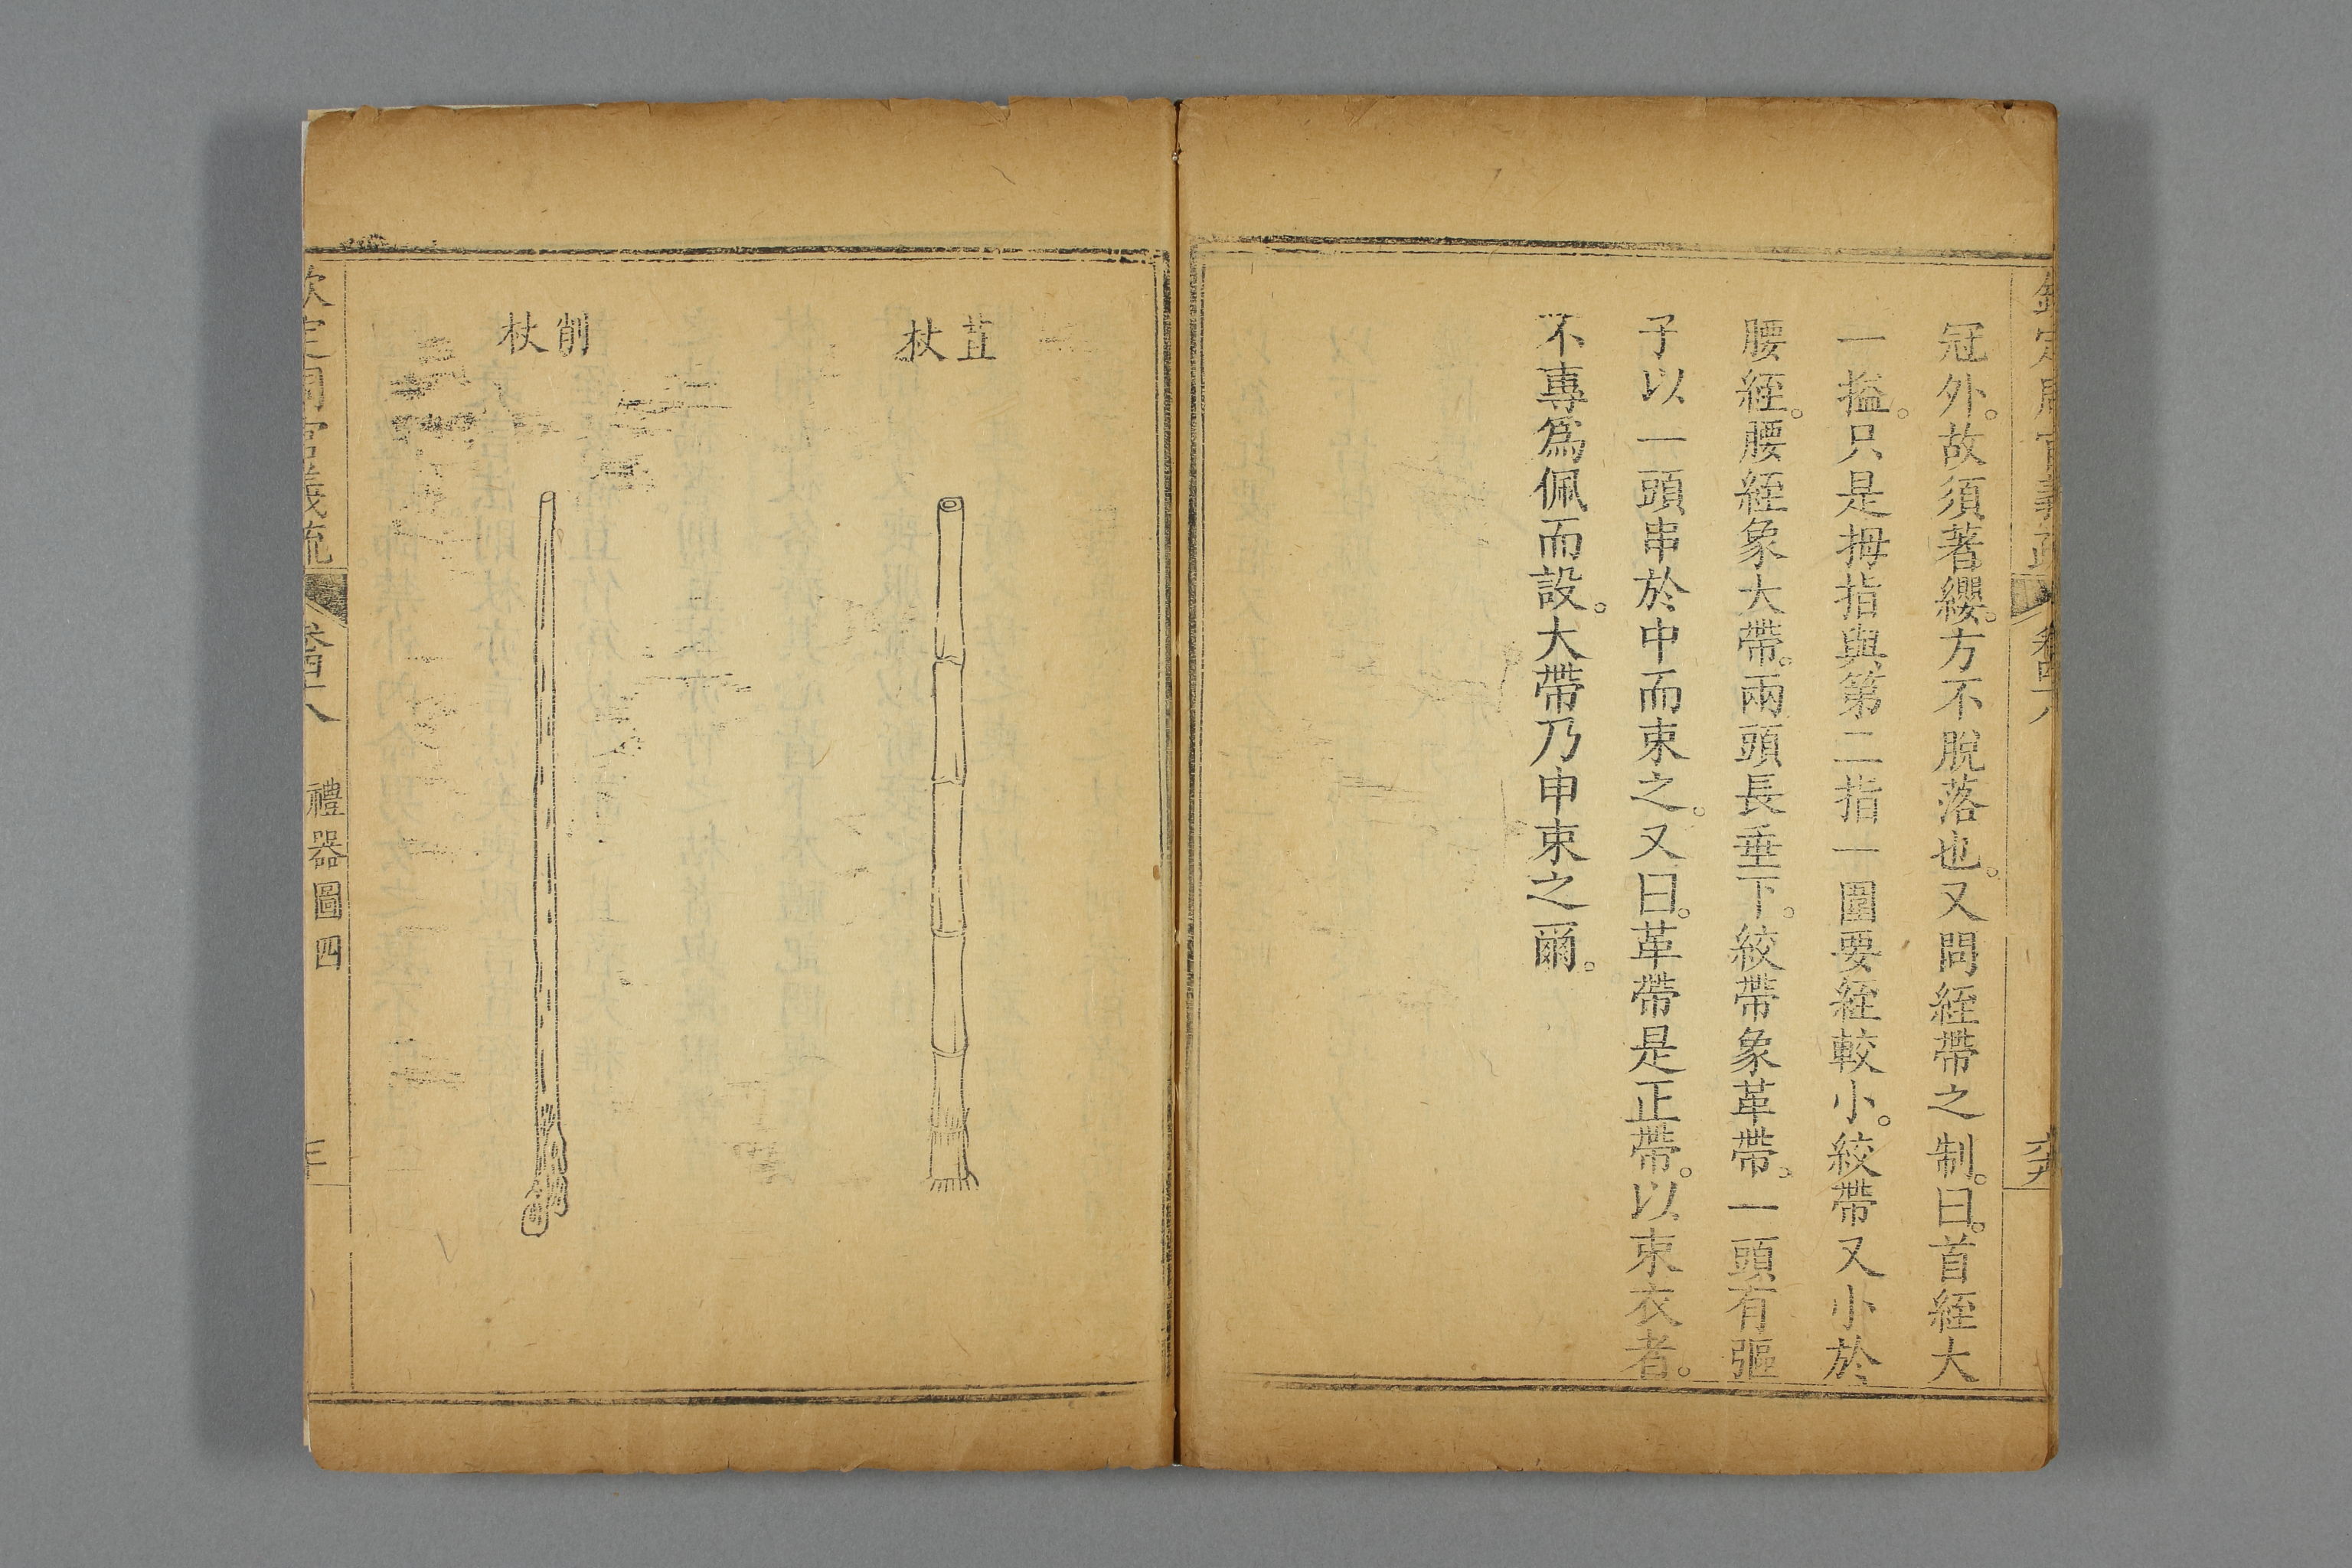 冠外。故須著纓。方不脫落也。又問絰帶之制。曰。首絰大
一搤。只是拇指與第二指一圍要絰較小。絞帶又小於
腰絰。腰絰象大帶。兩頭長垂下。絞帶象革帶。一頭有彄
子以一頭串於中而束之。又曰。革帶是正帶。以束衣者。
不專爲佩而設。大帶乃申束之爾。
苴杖
削杖
欽定周官義疏 卷四十八 禮器圖四